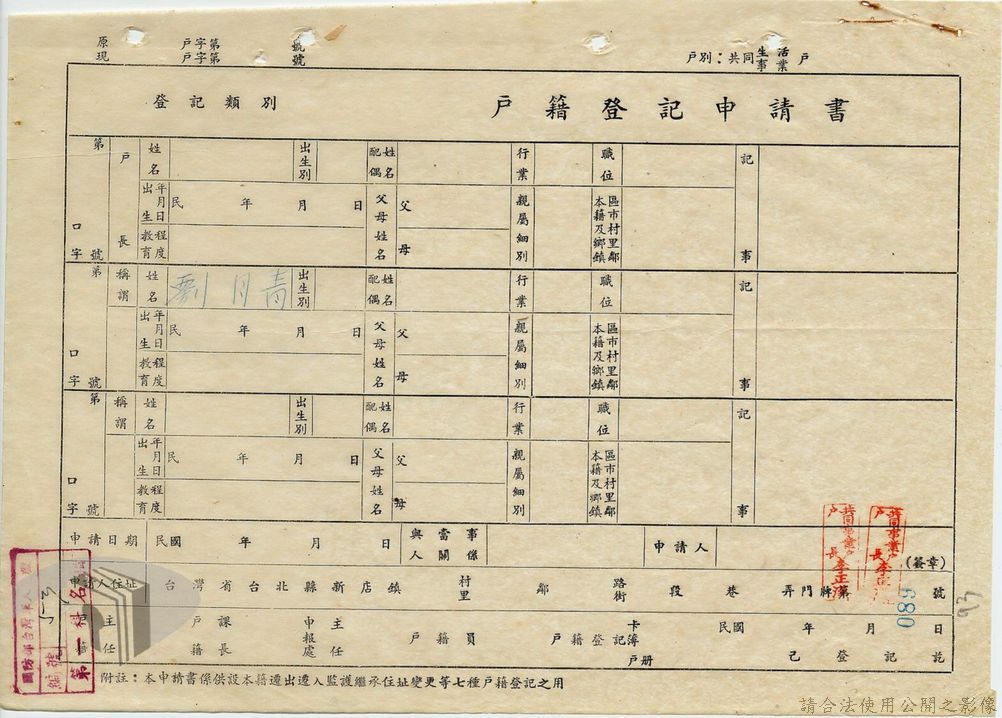 原 戶字第 號
現 戶字第 號
戶別：共同生活戶
事業
登記類別 戶籍登記申請書
第 口 號 字
戶長 姓名 出生別 配偶姓名 行業 職位 記事
出生年月日 民 年 月 日 父母姓名 父 母 親屬細別 本籍及鄉鎮區市村里鄰
教育程度
第 口 號 字
稱謂 姓名 劉月青 出生別 配偶姓名 行業 職位 記事
出生年月日 民 年 月 日 父母姓名 父 母 親屬細別 本籍及鄉鎮區市村里鄰
教育程度
第 口 號 字
稱謂 姓名 出生別 配偶姓名 行業 職位 記事
出生年月日 民 年 月 日 父母姓名 父 母 親屬細別 本籍及鄉鎮區市村里鄰
教育程度
申請日期 民國 年 月 日 與當事人關係 申請人 (簽章)
共同事業戶
戶長李正
共同事業戶
戶長李正
申請人住址 台灣省台北縣新店鎮 村里 鄰 路街 段 巷 弄門牌第 號
680
93
戶籍主任 戶籍課長 申報處主任 戶籍員 戶籍登記卡簿戶冊 民國 年 月 日
已登記訖
國防部台灣軍人監
編號
第一科名
附註：本申請書係供設本籍遷出遷入監護繼承住址變更等七種戶籍登記之用
請合法使用公開之影像